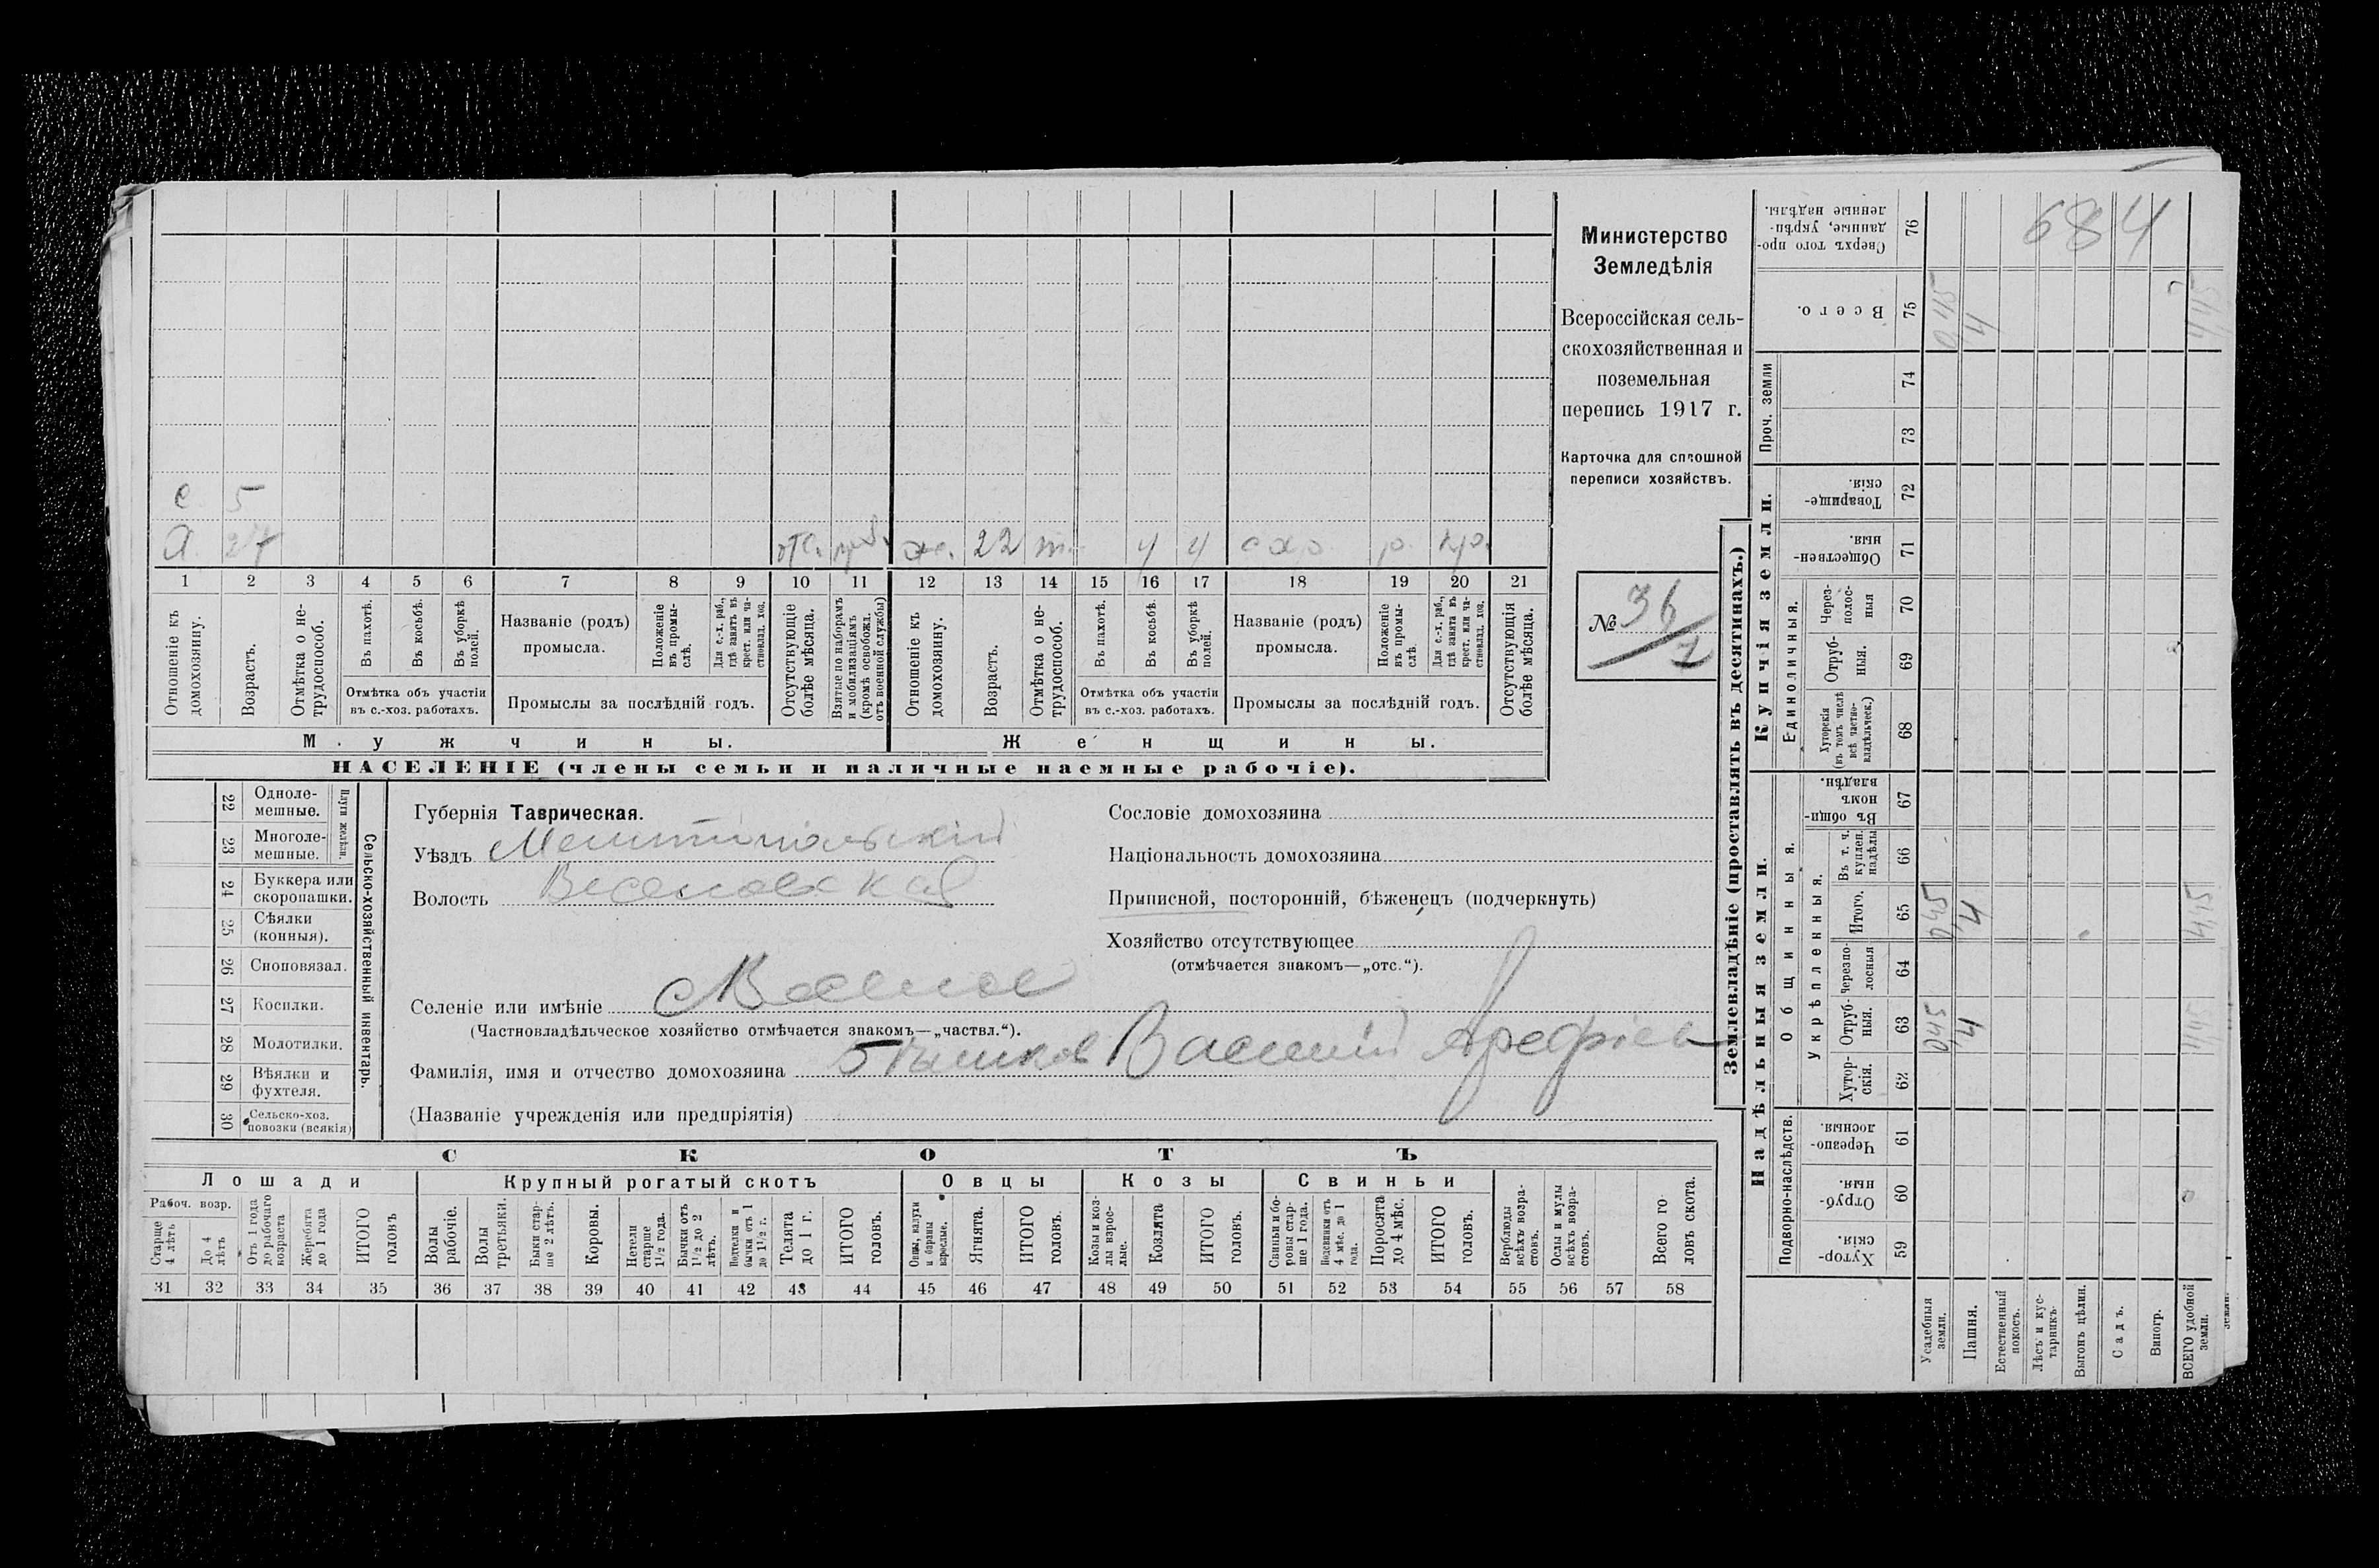 с. 5
Я. 27 отс. моб. ж. 22 4 4 р. кр.
1 2 3 4 5 6 7 8 9 10 11 12 13 14 15 16 17 18 19 20 21
Отношеніе къ домохозяину.
Возрастъ.
Отмѣтка о не-трудоспособ.
Въ пахотѣ.
Въ косьбѣ.
Въ уборкѣ полей.
Отмѣтка объ участіи
въ с.-хоз. работахъ.
Названіе (родъ)
промысла.
Положеніе въ промы-слѣ.
Для с.-х. раб., гдѣ занятъ въ крест. или ча-стновлад. хоз.
Промыслы за послѣдній годъ.
Отсутствующіе болѣе мѣсяца.
Взятые по наборамъ и мобилизаціямъ (кромѣ освобожд. отъ военной службы)
Отношеніе къ домохозяину.
Возрастъ.
Отмѣтка о не-трудоспособ.
Въ пахотѣ.
Въ косьбѣ.
Въ уборкѣ полей.
Отмѣтка объ участіи
въ с.-хоз. работахъ.
Названіе (родъ)
промысла.
Положеніе въ промы-слѣ.
Для с.-х. раб., гдѣ занята въ крест. или ча-стновлад. хоз.
Промыслы за послѣдній годъ.
Отсутствующія болѣе мѣсяца.
Мужчины.
Женщины.
НАСЕЛЕНІЕ (члены семьи и наличные наемные рабочіе).
Министерство
Земледѣлія
Всероссійская сель-
скохозяйственная и
поземельная
перепись 1917 г.
Карточка для сплошной
переписи хозяйствъ.
№ 36/2
22 Одноле-мешные.
23 Многоле-мешные.
Плуги желѣзн.
24 Буккера или скоропашки.
25 Сѣялки (конныя).
26 Сноповязал.
27 Косилки.
28 Молотилки.
29 Вѣялки и фухтеля.
30 Сельско-хоз. повозки (всякія)
Сельско-хозяйственный инвентарь.
Губернія Таврическая.
Уѣздъ Мелитопольскій
Волость Веселовская
Сословіе домохозяина
Національность домохозяина
Приписной, посторонній, бѣженецъ (подчеркнуть)
Хозяйство отсутствующее
(отмѣчается знакомъ—„отс.“).
Селеніе или имѣніе Веселое
(Частновладѣльческое хозяйство отмѣчается знакомъ—„частвл.“).
Фамилія, имя и отчество домохозяина Василій Арефіев
(Названіе учрежденія или предпріятія)
СКОТЪ
Лошади
Крупный рогатый скотъ
Овцы
Козы
Свиньи
Рабоч. возр.
Старше 4 лѣтъ
До 4 лѣтъ
Отъ 1 года до рабочаго возраста
Жеребята до 1 года
ИТОГО головъ
Волы рабочіе.
Волы третьяки.
Быки стар-ше 2 лѣтъ.
Коровы.
Нетели старше 1½ года.
Бычки отъ 1½ до 2 лѣтъ.
Подтелки и бычки отъ 1 до 1½ г.
Телята до 1 г.
ИТОГО головъ.
Овцы, валухи и бараны взрослые.
Ягнята.
ИТОГО головъ.
Козы и коз-лы взрос-лые.
Козлята
ИТОГО головъ.
Свиньи и бо-ровы стар-ше 1 года.
Подсвинки отъ 4 мѣс. до 1 года.
Поросята до 4 мѣс.
ИТОГО головъ.
Верблюды всѣхъ возра-стовъ.
Ослы и мулы всѣхъ возра-стовъ.
Всего го ловъ скота.
31 32 33 34 35 36 37 38 39 40 41 42 43 44 45 46 47 48 49 50 51 52 53 54 55 56 57 58
Землевладѣніе (проставлять въ десятинахъ.)
Надѣльныя земли.
Купчія земли.
Проч. земли
Сверхъ того про-данные, укрѣп-ленные надѣлы. 76
684
Всего. 75 0,45 4 4,45
74
73
Товарище-скія. 72
Обществен-ныя. 71
Единоличныя.
Через-полос-ныя 70
Отруб-ныя. 69
Хуторскія (въ томъ числѣ всѣ частно-владѣльческ.) 68
Общинныя.
Въ общин-номъ владѣн. 67
Укрѣпленныя.
Въ т. ч. куплен. надѣлы 66
Итого. 65 0,45 4 4,45
Черезпо-лосныя 64
Отруб-ныя. 63 0,45 4 4,45
Хутор-скія. 62
Подворно-наслѣдств.
Черезпо-лосныя. 61
Отруб-ныя. 60
Хутор-скія. 59
Усадебныя земли.
Пашня.
Естественный покосъ.
Лѣсъ и кус-тарникъ.
Выгонъ цѣлин.
Садъ.
Виногр.
ВСЕГО удобной земли.